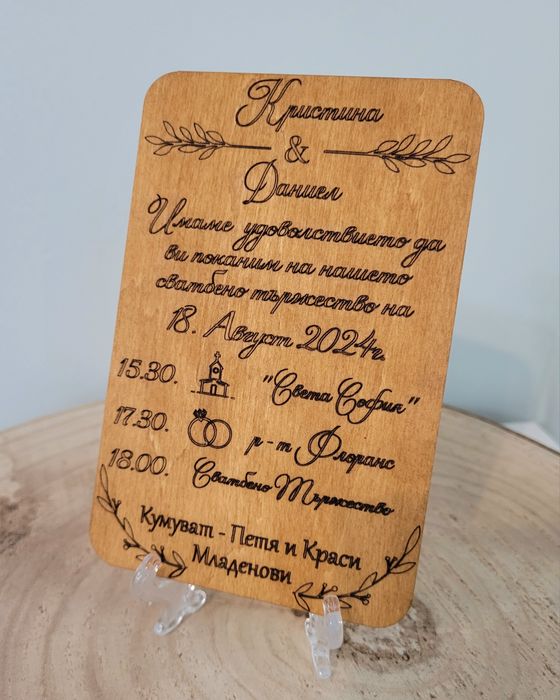 Кристина
&
Даниел
Имаме удоволствието да
ви поканим на нашето
сватбено тържество на
18. Август 2024г.
15.30. "Света София"
17.30. р-т Флоранс
18.00. Сватбено Тържество
Кумуват - Петя и Краси
Младенови